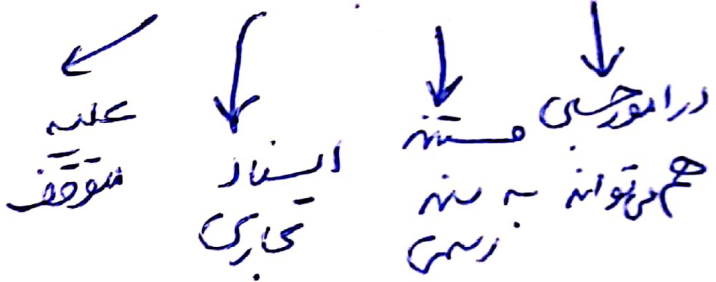 در امور حسبی
هم می‌تواند
مستند
به سند
رسمی
اسناد
تجاری
علیه
متوقف